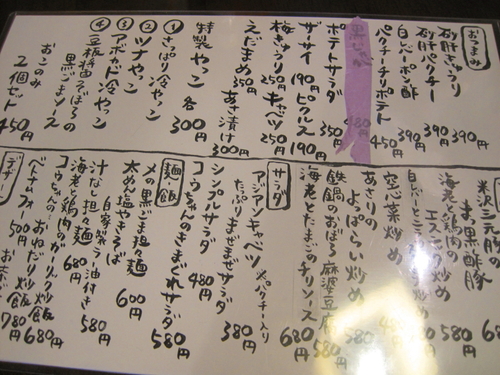 おつまみ
砂肝きゅうり 390円
砂肝パクチー 390円
白レバーポン酢 390円
パクチーチリポテト 450円
480円
ポテトサラダ 350円
ザーサイ 190円 ピクルス 190円
梅きゅうり 250円 キャベツ 250円
えだまめ 350円 あさ漬け 300円
特製 やっこ 各 300円
① さっぱり冷やっこ
② ツナやっこ
③ アボカド冷やっこ
④ 豆板醤そぼろの
黒ごまソース
お このみ
2個セット 450円
米沢三元豚の
まっ黒酢豚 580円
海老と鶏肉の
エスニック炒め
空芯菜炒め
あさりの
よっぱらい炒め 580円
鉄鍋のおぼろ麻婆豆腐 580円
海老とたまごのチリソース 680円
サラダ
アジアンキャベツ ※パクチー入り 380円
たっぷりまぜまぜサラダ
シンプルサラダ 480円
コウちゃんのきまぐれサラダ 580円
麺・飯
〆の黒ごま担々麺
太めん塩やきそば 600円
自家製ラー油付き
汁なし担々麺 580円
海老と鶏肉のガーリック炒飯 680円
コウちゃんの
おねだり炒飯 680円
ベトナムフォー 500円
780円
デザート